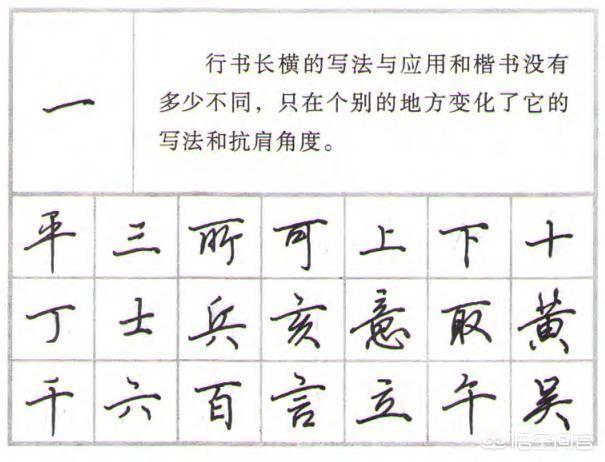 一
行书长横的写法与应用和楷书没有
多少不同，只在个别的地方变化了它的
写法和抗肩角度。
平 三 所 可 上 下 十
丁 士 兵 亥 意 取 黄
千 六 百 言 立 午 吴
悟空问答